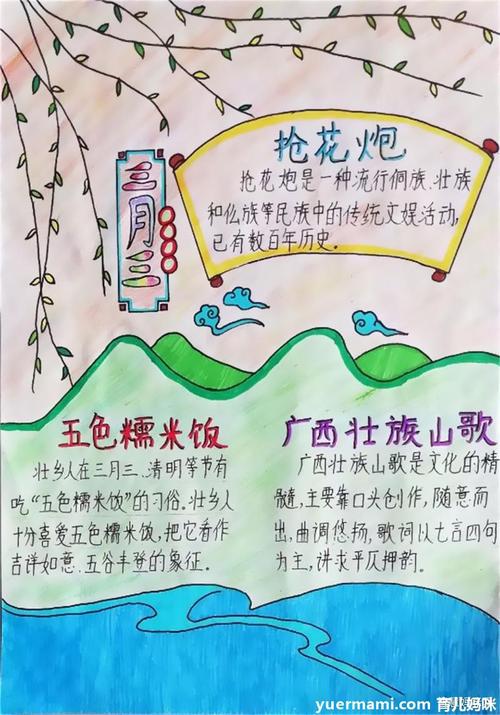 抢花炮
抢花炮是一种流行侗族、壮族
和仫族等民族中的传统文娱活动,
已有数百年历史。
三月三
五色糯米饭
壮乡人在三月三、清明等节有
吃“五色糯米饭”的习俗。壮乡人
十分喜爱五色糯米饭,把它看作
吉详如意、五谷丰登的象征。
广西壮族山歌
广西壮族山歌是文化的精
髓,主要靠口头创作,随意而
出,曲调悠扬,歌词以七言四句
为主,讲求平仄押韵。
yuermami.com 育儿妈咪